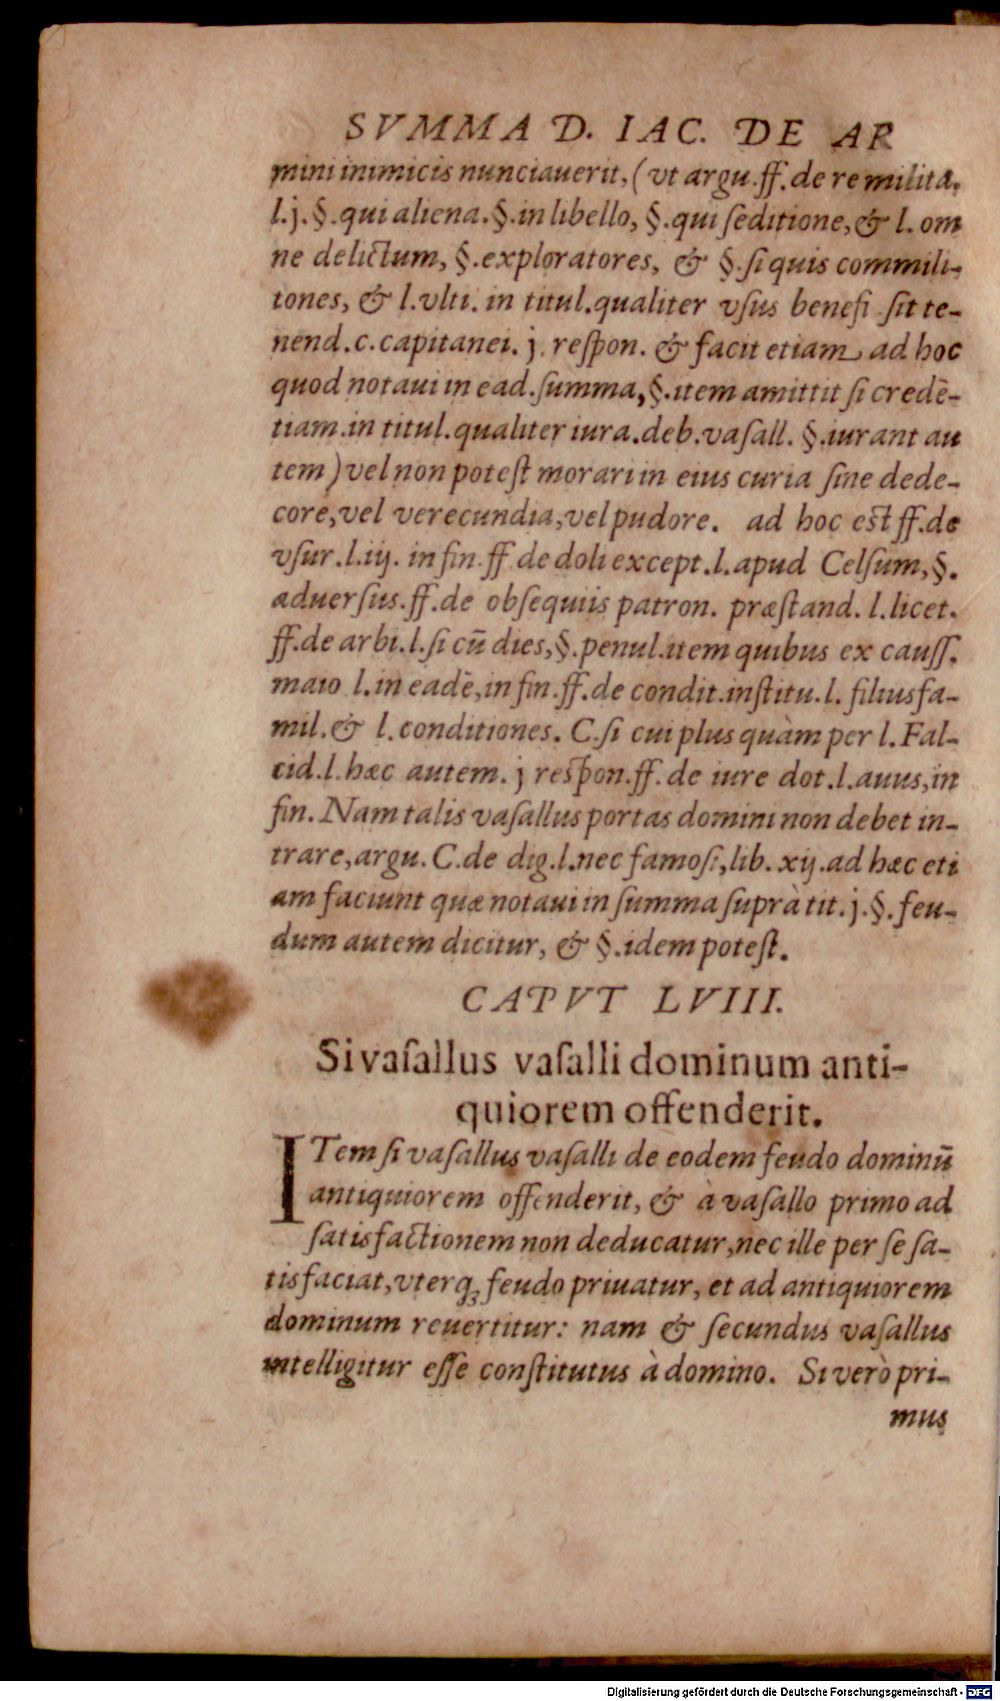 SVMMA D. IAC. DE AR
mini inimicis nunciauerit, (vt argu.ff.de re milita.
l.j.§.qui aliena.§.in libello, §.qui ſeditione, & l. om
ne delictum, §.exploratores, & §.ſi quis commili-
tones, & l.vlti. in titul.qualiter vſus benefi ſit te-
nend.c.capitanei. j. reſpon. & facit etiam ad hoc
quod notaui in ead.ſumma, §.item amittit ſi credē-
tiam.in titul.qualiter iura.deb.vaſall. §.iurant au
tem) vel non poteſt morari in eius curia ſine dede-
core, vel verecundia, vel pudore. ad hoc eſt ff.de
vſur.l.iij. in fin.ff de doli except.l.apud Celſum, §.
aduerſus.ff.de obſequiis patron. præſtand. l.licet.
ff.de arbi.l.ſi cū dies, §.penul.item quibus ex cauſſ.
maio l. in eadē, in fin.ff.de condit.inſtitu.l. filiusfa-
mil. & l.conditiones. C.ſi cui plus quàm per l.Fal-
cid.l.hæc autem. j reſpon.ff.de iure dot.l.auus, in
fin. Nam talis vaſallus portas domini non debet in-
trare, argu. C.de dig.l.nec famoſi, lib. xij.ad hæc eti
am faciunt quæ notaui in ſumma ſuprà tit. j.§.feu-
dum autem dicitur, & §.idem poteſt.
CAPVT LVIII.
Si vaſallus vaſalli dominum anti-
quiorem offenderit.
ITem ſi vaſallus vaſalli de eodem feudo dominū
antiquiorem offenderit, & à vaſallo primo ad
ſatisfactionem non deducatur, nec ille per ſe ſa-
tisfaciat, vterq; feudo priuatur, et ad antiquiorem
dominum reuertitur: nam & ſecundus vaſallus
intelligitur eſſe conſtitutus à domino. Si verò pri-
mus
Digitalisierung gefördert durch die Deutsche Forschungsgemeinschaft - DFG